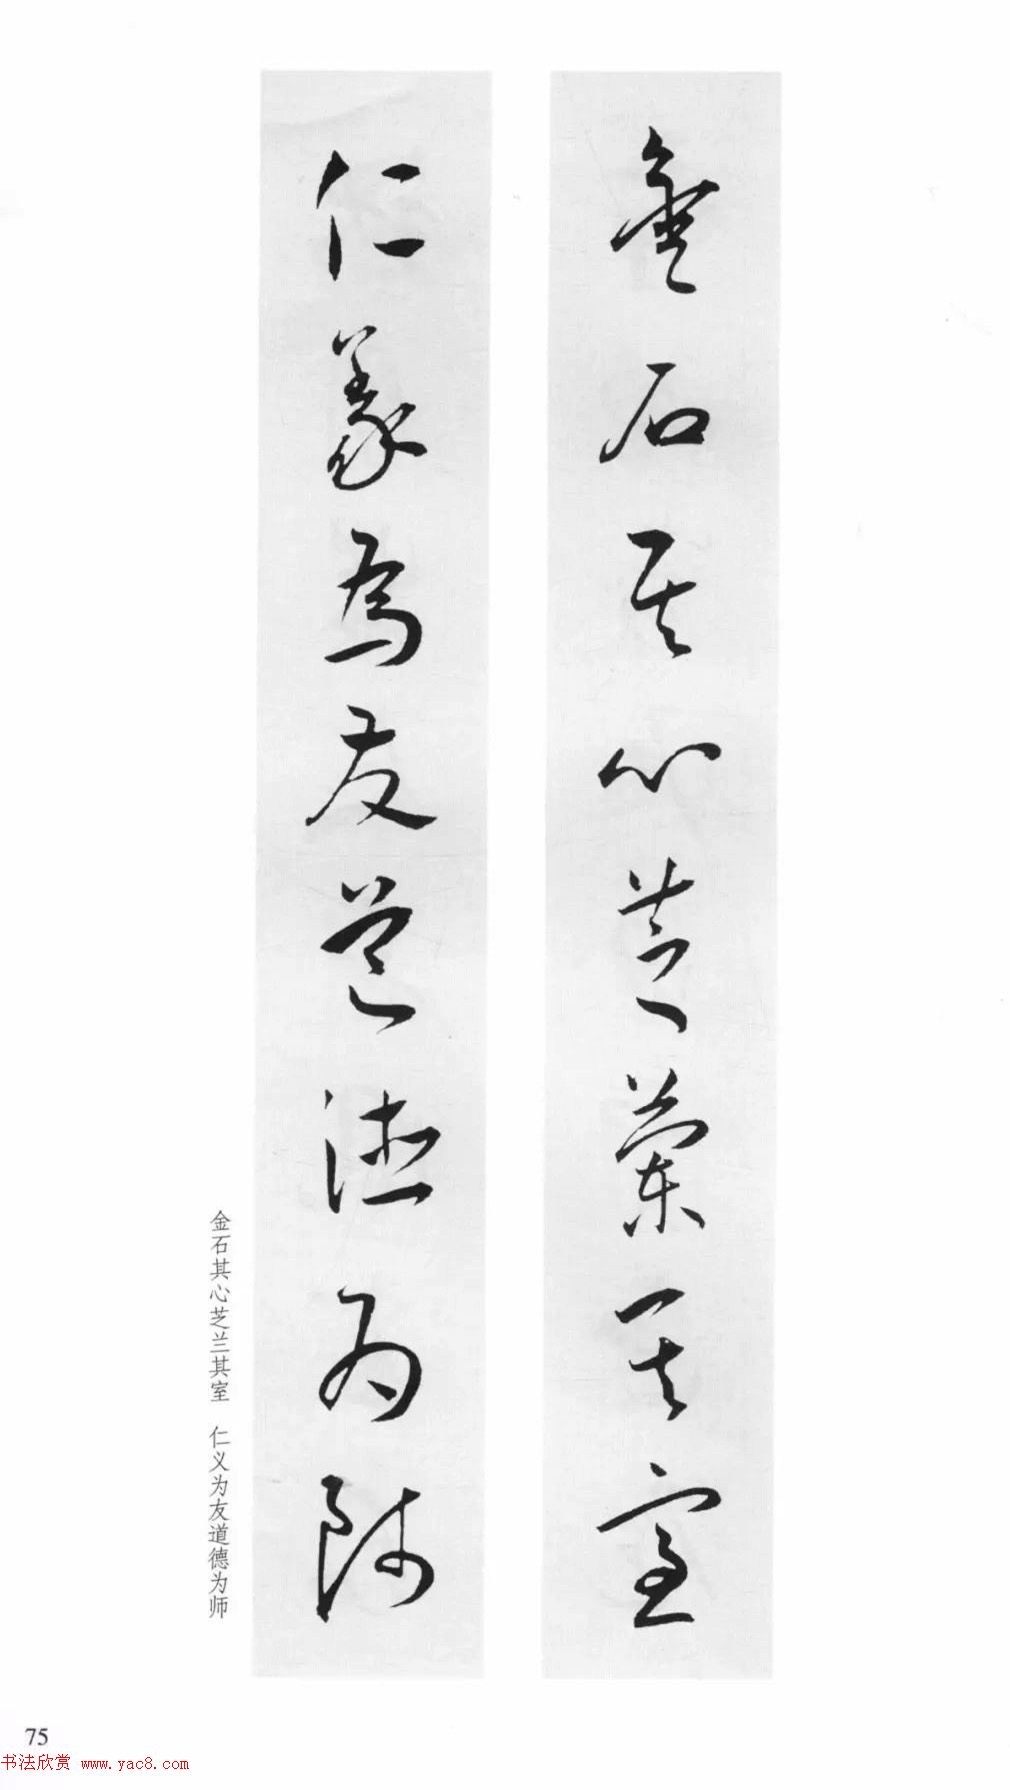 金石其心芝蘭其室
仁義為友道德為師
金石其心芝兰其室 仁义为友道德为师
75
书法欣赏 www.yac8.com